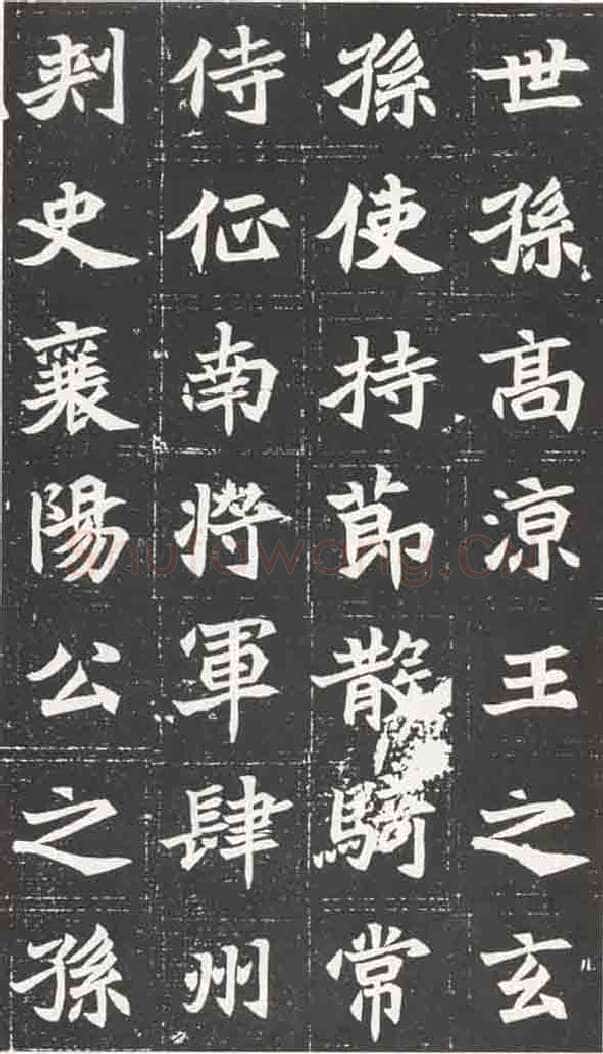 世孫髙涼王之玄
孫使持莭散騎常
侍征南将軍肆州
刾史襄陽公之孫
shufawang.cn